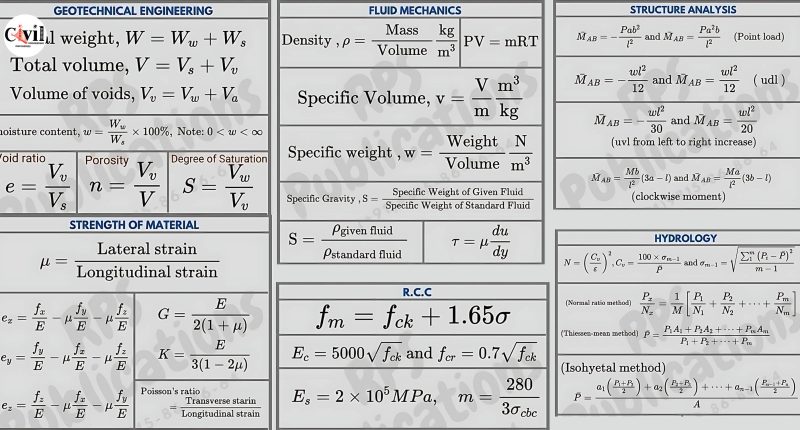 GEOTECHNICAL ENGINEERING
Civil
weight, W = W_w + W_s
Total volume, V = V_s + V_v
Volume of voids, V_v = V_w + V_a
moisture content, w = W_w/W_s × 100%, Note: 0 < w < ∞
Void ratio
e = V_v/V_s
Porosity
n = V_v/V
Degree of Saturation
S = V_w/V_v
STRENGTH OF MATERIAL
μ = Lateral strain/Longitudinal strain
e_x = f_x/E − μ f_y/E − μ f_z/E
e_y = f_y/E − μ f_x/E − μ f_z/E
e_z = f_z/E − μ f_x/E − μ f_y/E
G = E/2(1 + μ)
K = E/3(1 − 2μ)
Poisson's ratio
= Transverse starin/Longitudinal strain
FLUID MECHANICS
Density, ρ = Mass/Volume kg/m³
PV = mRT
Specific Volume, v = V/m m³/kg
Specific weight, w = Weight/Volume N/m³
Specific Gravity, S = Specific Weight of Given Fluid/Specific Weight of Standard Fluid
S = ρ_given fluid/ρ_standard fluid
τ = μ du/dy
R.C.C
f_m = f_ck + 1.65σ
E_c = 5000√f_ck and f_cr = 0.7√f_ck
E_s = 2 × 10⁵ MPa, m = 280/3σ_cbc
STRUCTURE ANALYSIS
M̄_AB = − Pab²/l² and M̄_AB = Pa²b/l² (Point load)
M̄_AB = − wl²/12 and M̄_AB = wl²/12 ( udl )
M̄_AB = − wl²/30 and M̄_AB = wl²/20
(uvl from left to right increase)
M̄_AB = Mb/l² (3a − l) and M̄_AB = Ma/l² (3b − l)
(clockwise moment)
HYDROLOGY
N = (C_v/ε)², C_v = 100 × σ_m−1/P̄ and σ_m−1 = √(∑₁ᵐ (P_i − P̄)²/m − 1)
(Normal ratio method) P_x/N_x = 1/M [P_1/N_1 + P_2/N_2 + ··· + P_m/N_m]
(Thiessen-mean method) P̄ = P_1A_1 + P_2A_2 + ··· + P_mA_m/P_1 + P_2 + ··· P_m
(Isohyetal method)
P̄ = a_1(P_1+P_2/2) + a_2(P_2+P_3/2) + ··· + a_n−1(P_n−1+P_n/2)/A
RPS Publications